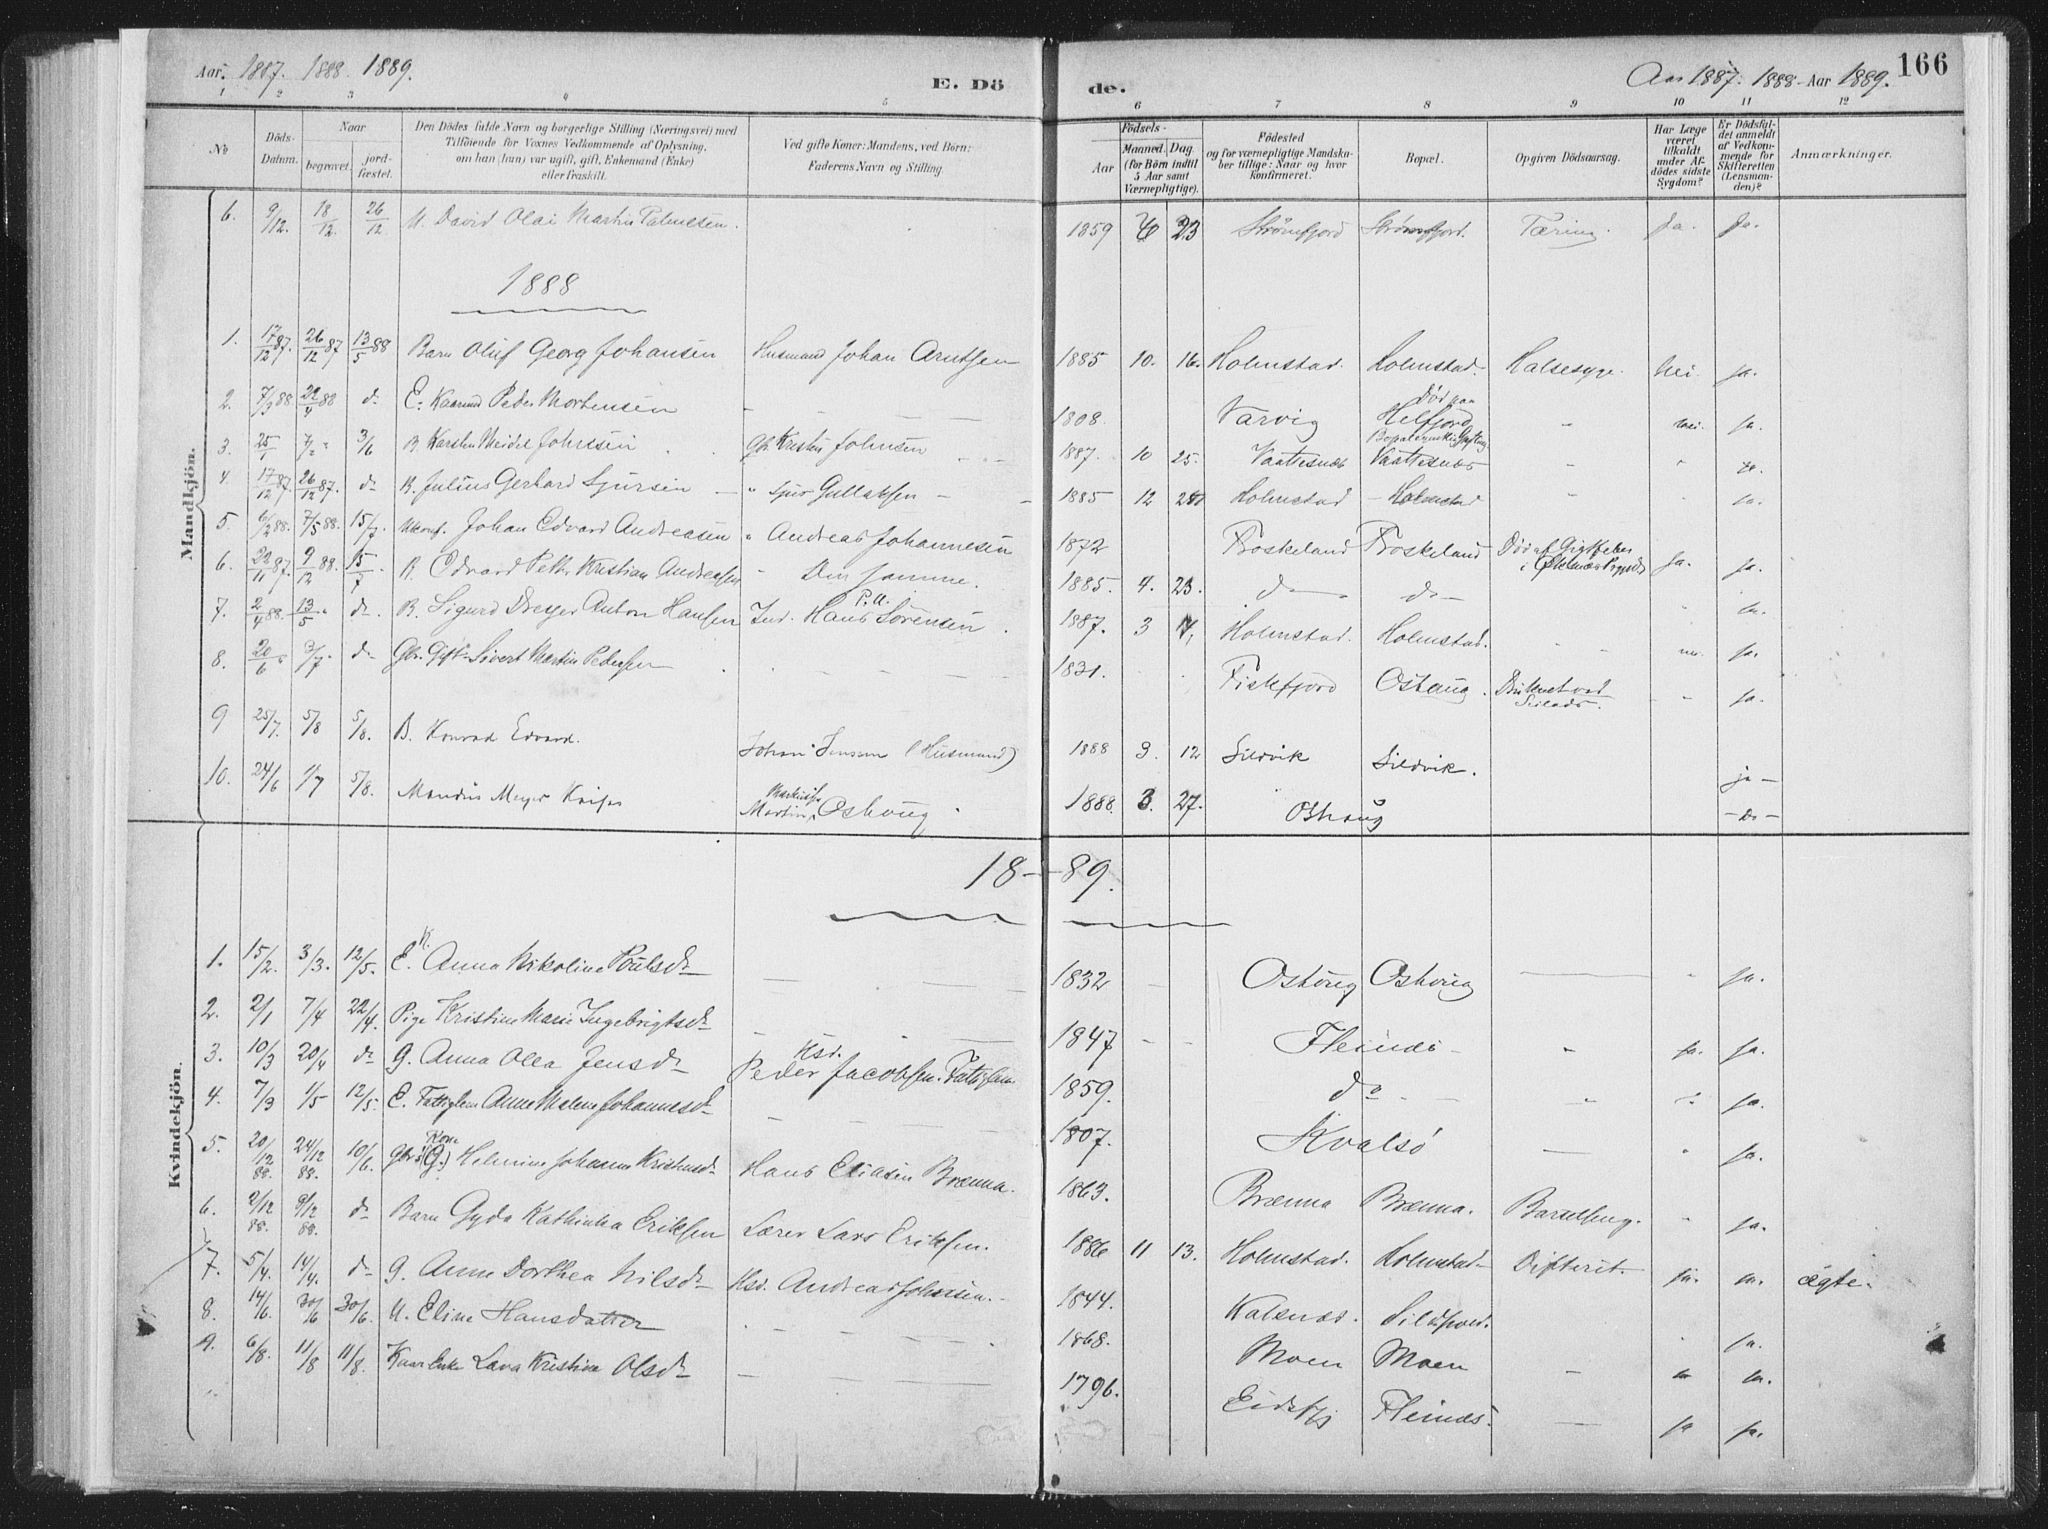 Aar. 1887. 1888. 1889. E. Dö de. Aar 1887. 1888 - Aar 1889. 166
1 2 3 4 5 6 7 8 9 10 11 12
No
Döds-Datum.
Naar begravet. jordfæstet.
Den Dödes fulde Navn og borgerlige Stilling (Næringsvei) med Tilföiende for Voxnes Vedkommende af Oplysning, om han (hun) var ugift, gift, Enkemand (Enke) eller fraskilt.
Ved gifte Koner: Mandens, ved Börn: Faderens Navn og Stilling
Födsels-
Aar
Maaned. Dag (for Börn indtil 5 Aar samt Værnepligtige).
Födested og for værnepligtige Mandskaber tillige: Naar og hvor konfirmeret.
Bopæl.
Opgiven Dödsaarsag.
Har Læge været tilkaldt under Afdödes sidste Sygdom?
Er Dödsfaldet anmeldt af Vedkommende for Skifteretten (Lensmanden)?
Anmærkninger.
Mandkjön.
6. 9/12. 18/12. 26/12 U. David Olai Martin Palmesen. 1859 6 23 Strømfjord Strømfjord. Tæring. Ja. Ja.
1888
1. 17/12 87. 26/12 87 13/5 88 Barn Oluf Georg Johansen Husmand Johan Arntsen 1885 10. 16. Holmstad. Holmstad. Halsesyge. Nei. ja.
2. 7/3 88 22/4 88 do E. Kaarmd Peder Mortensen 1808. Varvig Død paa Helfjord " nei. ja.
3. 25/1 7/2 " 3/6 B. Karsten Meidel Johnsen Gbr. Kristen Johnsen 1887. 10 25. Vaattesnæs Vaattesnæs " ja.
4. 17/12 87 26/12 87. do B. Julius Gerhard Sjursen " Sjur Gullaksen 1885 12 Holmstad - Holmstad " ja.
5. 6/2 88. 7/5 88. 15/7. Johan Edvard Andreasen " Andreas Johannesen 1872 Froskeland Froskeland Død af Gigtfeber ja. ja.
6. 22/11 87. 9/12 88. 15/7 B. Edvard Peder Kristian Andreassen " Den samme. 1885. 4. 23. do do ja.
7. 2/4 88. 13/5 " do B. Sigurd Dreyer Anton Hansen Ind. Hans P. A. Sörensen 1887. 3 Holmstad. Holmstad. ja.
8. 20/6 " 3/7 " do Gbr. Gift Sivert Martin Pedersen 1831. Fiskfjord Oshaug. Druknet ved Seilads. " ja.
9 25/7. 5/8 5/8. B. Konrad Edvard. Johan Jensen (Husmand) 1888 3. 12 Sildvik Sildvik. ja -
10. 24/6 1/7 5/8. Mandius Meyer Martin Markussen Oshoug. 1888. 3. 27. Oshoug - Do -
18-89.
Kvindekjön.
1. 15/2. 3/3. 12/5. E. K. Anna Nikoline Poulsdr 1832 Oshoug Oshoug ja.
2. 2/1 7/4 22/4. Pige Kristine Marie Ingebrigtsdr 1847 Fleinæs " ja. ja.
3. 10/3 20/4 do G. Anna Olea Jensdr Hsd. Peder Jacobsen. 1859. do " ja.
4. 7/3 1/5 12/5. E. Fattiglem Anne Malene Johannesdr 1807. Kvalsö " ja.
5. 20/12 88. 24/12 88. 10/6. Gbr. Kone (G.) Helmine Johanna Kristensdr Hans Eliasen Brænna. 1863. Brænna Brænna. Barselseng. " ja.
6. 2/12 88. 9/12 88. do Barn Gyda Kathinka Eriksen Lærer Lars Eriksen. 1886 11 13. Holmstad. Holmstad. Difterit. ja. ja. ægte.
7. 5/4. 14/4. do G. Anne Dorthea Nilsdr Hsd. Andreas Johnsen. 1844. Kalsnæs. ja.
8. 14/6. 30/6 30/6. U. Eline Hansdatter 1868. Moen Moen ja. ja.
9. 6/8. 11/8 11/8. Kaar Enke Lava Kristina Olsdr 1796. Fleinæs. ja ja.